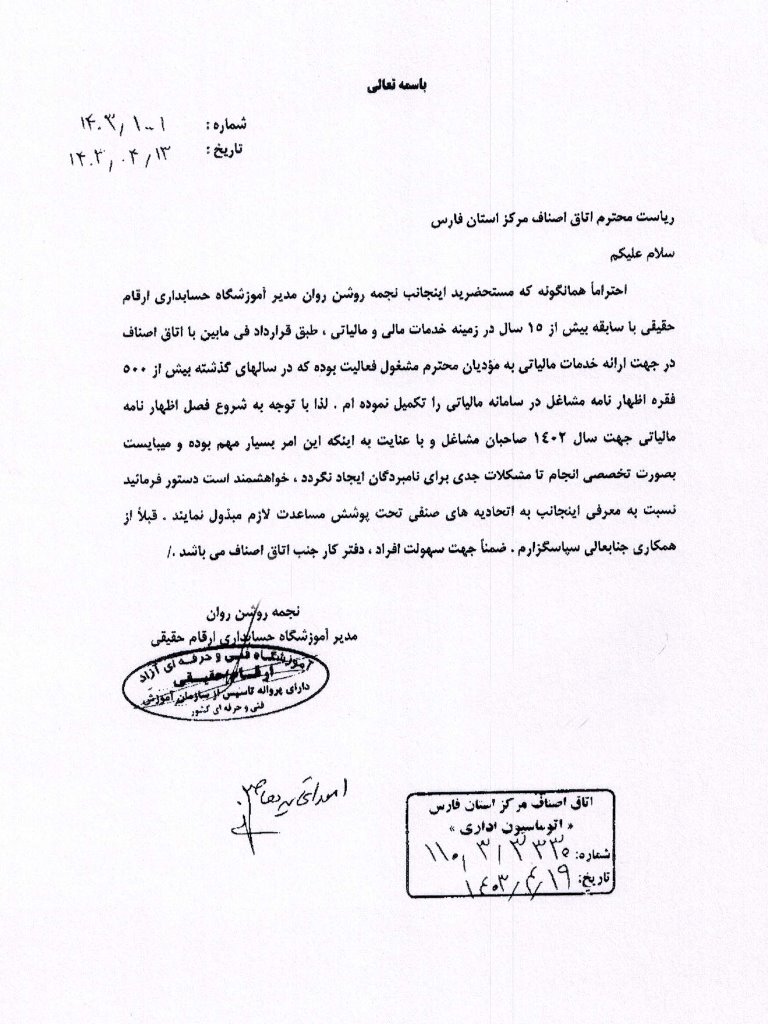 باسمه تعالی
شماره : ۱۴۰۳/۱۰۰۱
تاریخ : ۱۴۰۳/۰۴/۱۳
ریاست محترم اتاق اصناف مرکز استان فارس
سلام علیکم
احتراماً همانگونه که مستحضرید اینجانب نجمه روشن روان مدیر آموزشگاه حسابداری ارقام
حقیقی با سابقه بیش از ۱۵ سال در زمینه خدمات مالی و مالیاتی ، طبق قرارداد فی مابین با اتاق اصناف
در جهت ارائه خدمات مالیاتی به مؤدیان محترم مشغول فعالیت بوده که در سالهای گذشته بیش از ۵۰۰
فقره اظهار نامه مشاغل در سامانه مالیاتی را تکمیل نموده ام . لذا با توجه به شروع فصل اظهار نامه
مالیاتی جهت سال ۱۴۰۲ صاحبان مشاغل و با عنایت به اینکه این امر بسیار مهم بوده و میبایست
بصورت تخصصی انجام تا مشکلات جدی برای نامبردگان ایجاد نگردد ، خواهشمند است دستور فرمائید
نسبت به معرفی اینجانب به اتحادیه های صنفی تحت پوشش مساعدت لازم مبذول نمایند . قبلاً از
همکاری جنابعالی سپاسگزارم . ضمناً جهت سهولت افراد ، دفتر کار جنب اتاق اصناف می باشد ./
نجمه روشن روان
مدیر آموزشگاه حسابداری ارقام حقیقی
آموزشگاه فنی و حرفه ای آزاد
ارقام حقیقی
دارای پروانه تاسیس از سازمان آموزش
فنی و حرفه ای کشور
اتاق اصناف مرکز استان فارس
« اتوماسیون اداری »
شماره: ۱۱۰/۳/۳۳۳۵
تاریخ: ۱۴۰۳/۴/۱۹